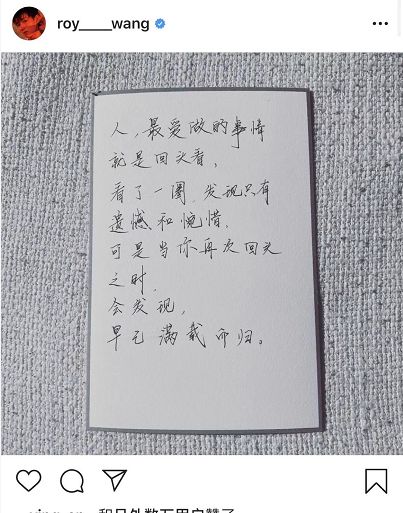 roy____wang
人，最爱做的事情
就是回头看，
看了一圈，发现只有
遗憾和惋惜，
可是当你再次回头
之时，
会发现，
早已满载而归。